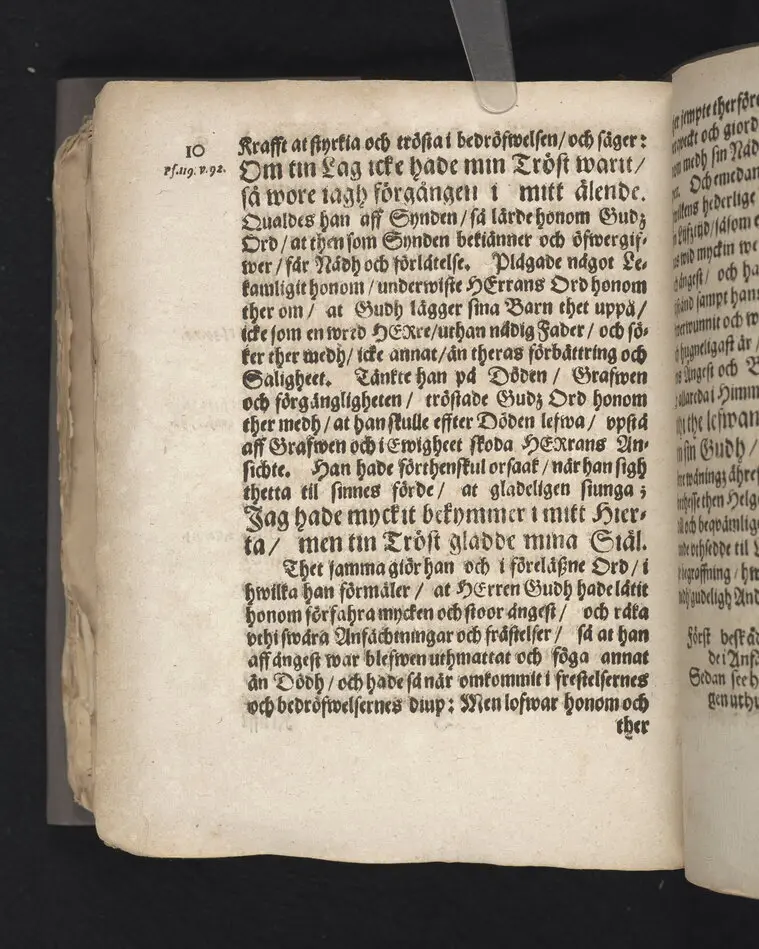 10
Ps.119.v.92.
Krafft at styrkia och trösta i bedröfwelsen/ och säger:
Om tin Lag icke hade min Tröst warit/
så wore iagh förgången i mitt älende.
Qualdes han aff Synden/ så lärde honom Gudz
Ord/ at then som Synden bekiänner och öfwergif-
wer/ får Nådh och förlåtelse. Plågade något Le-
kamligit honom/ underwiste HErrans Ord honom
ther om/ at Gudh lägger sina Barn thet uppå/
icke som en wred HERre/ uthan nådig Fader/ och sö-
ker ther medh/ icke annat/ än theras förbättring och
Saligheet. Tänkte han på Döden/ Grafwen
och förgängligheten/ tröstade Gudz Ord honom
ther medh/ at han skulle effter Döden lefwa/ vpstå
aff Grafwen och i Ewigheet skoda HERrans An-
sichte. Han hade förthenskul orsaak/ när han sigh
thetta til sinnes förde/ at gladeligen siunga;
Jag hade myckit bekymmer i mitt Hier-
ta/ men tin Tröst gladde mina Siäl.
Thet samma giör han och i föreläßne Ord/ i
hwilka han förmäler/ at HErren Gudh hade låtit
honom förfahra mycken och stoor ångest/ och råka
vthi swåra Anfächtningar och frästelser/ så at han
aff ångest war blefwen uthmattat och föga annat
än Dödh/ och hade så när omkommit i frestelsernes
och bedröfwelsernes diup: Men lofwar honom och
ther